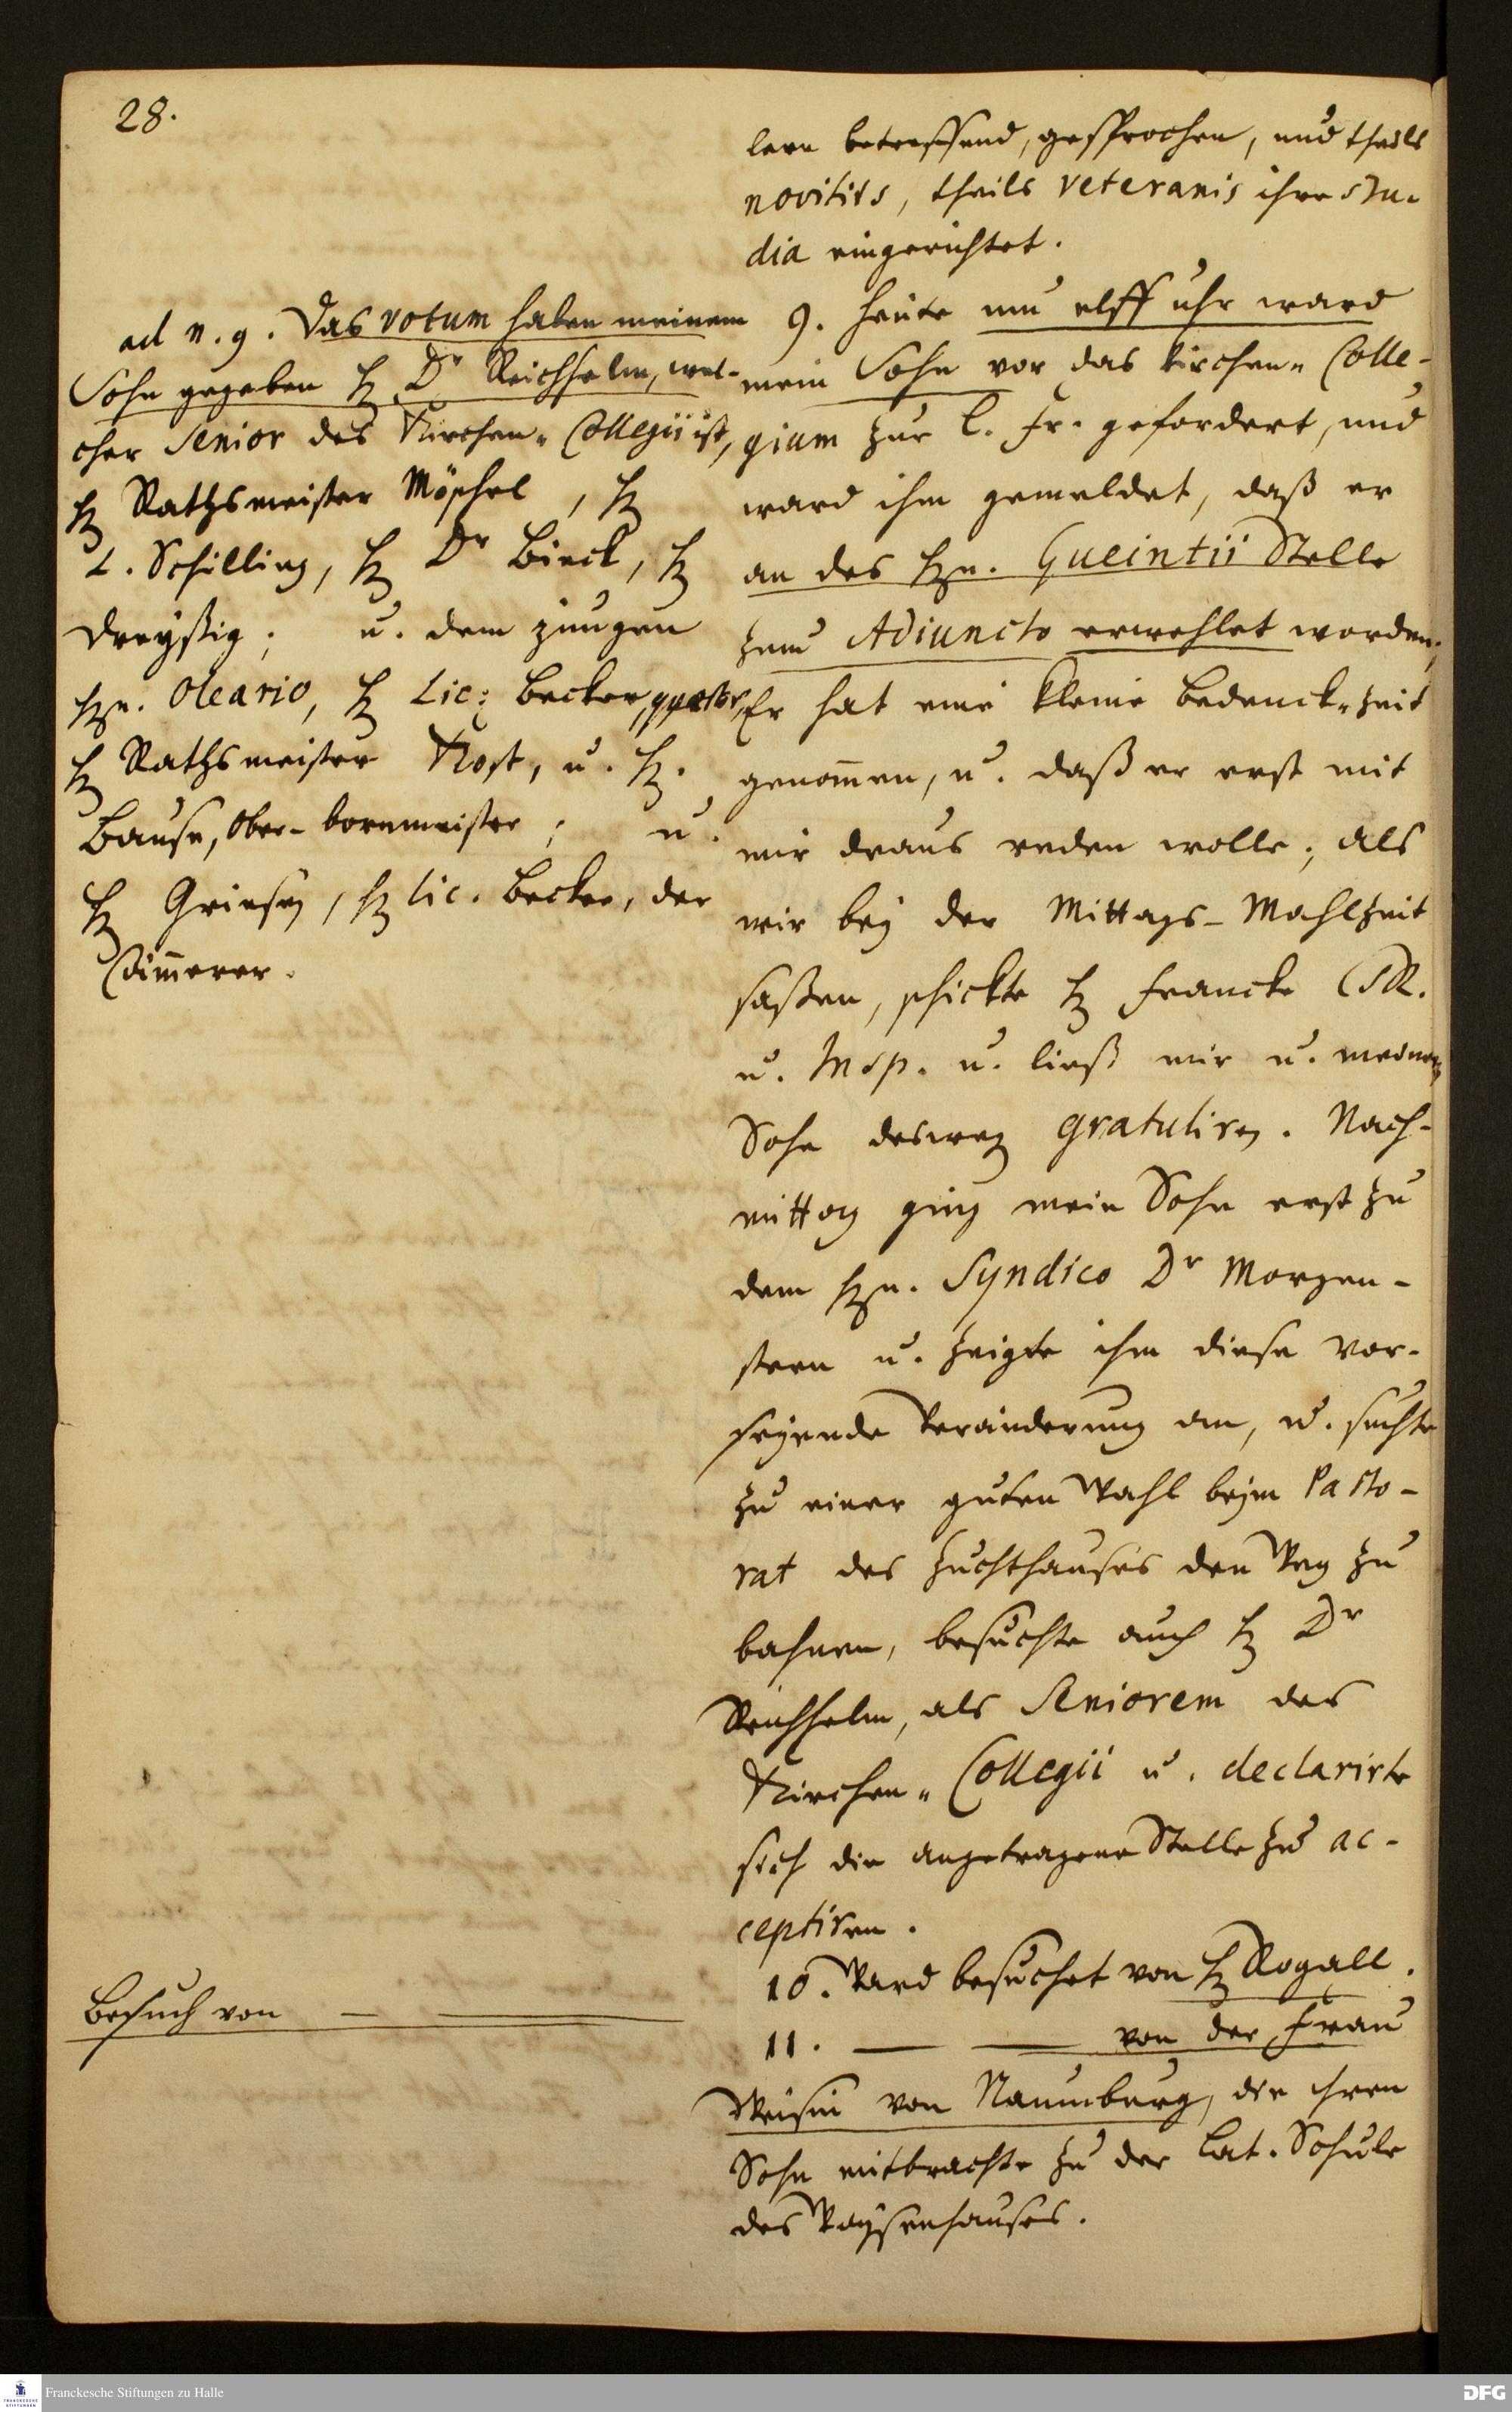 28.
lern betreffend, gesprochen, und theils
novitiis, theils veteranis ihre stu-
dia eingerichtet.
ad n. 9. Das votum haben meinem
Sohn gegeben H. Dr Reichhelm, wel-
cher Senior des Kirchen-Collegii ist,
H. Rathsmeister Möschel, H.
L. Schilling, H. Dr Bieck, H.
Dreyßig; u. dem jungen
Hn. Oleario, H. Lic: Becker,
H. Rathsmeister Kost, u. H.
Bause, Ober-bornmeister; u.
H. Griesen, H. Lic. Becker, der
Cämmerer.
9. Heute um elff uhr ward
mein Sohn vor das Kirchen-Colle-
gium zur L. Fr. gefordert, und
ward ihm gemeldet, daß er
an des Hn. Gueintii Stelle
zum Adiuncto erwehlet worden;
Er hat eine kleine Bedenck-Zeit
genommen, u. daß er erst mit
mir draus reden wolle; als
wir bey der Mittags-Mahlzeit
saßen, schickte H. Francke CSR.
u. Insp. u. ließ mir u. meinem
Sohn deswegen gratuliren. Nach-
mittag ging mein Sohn erst zu
dem Hn. Syndico Dr Morgen-
stern u. zeigte ihm diese vor-
seyende Veränderung an, u. suchte
zu einer guten Wahl beym Pasto-
rat des Zuchthauses den Weg zu
bahnen, besuchte auch H. Dr
Reichhelm, als Seniorem des
Kirchen-Collegii u. declarirte
sich die angetragene Stelle zu ac-
ceptiren.
10. Ward besuchet von H. Rogall.
Besuch von
11. — — von der Frau
Weisin von Naumburg, die ihren
Sohn mitbrachte zu der Lat. Schule
des Waysenhauses.
Franckesche Stiftungen zu Halle
DFG